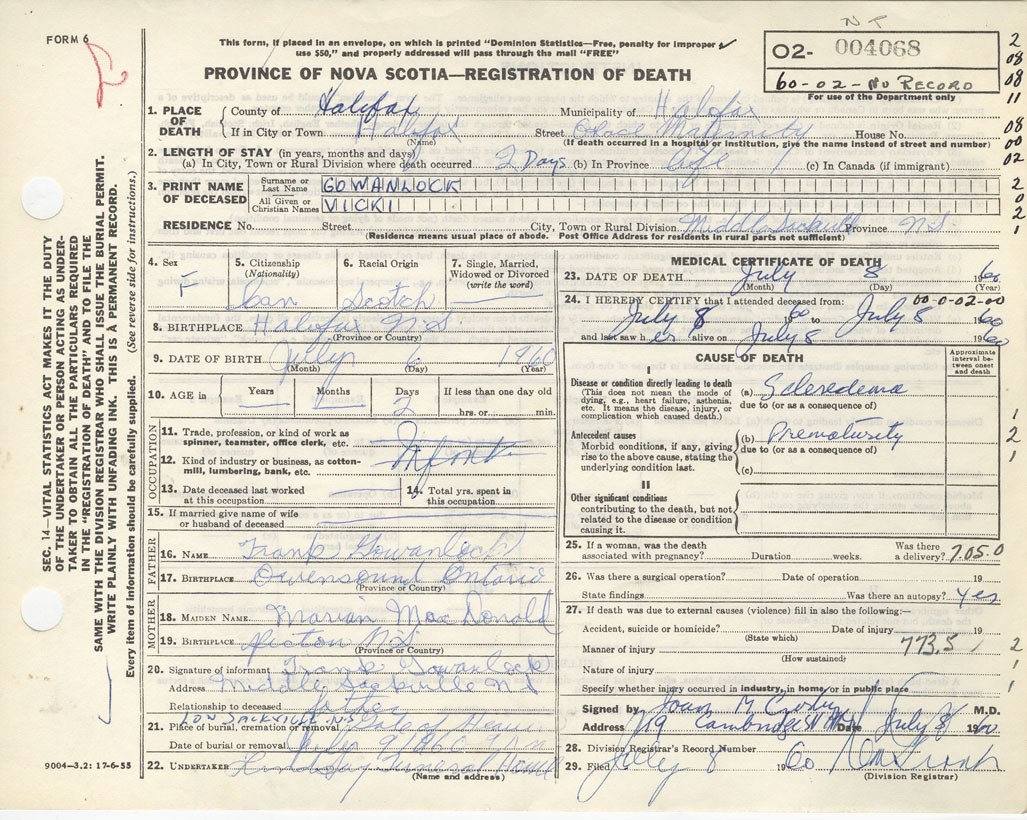 N S
FORM 6
This form, if placed in an envelope, on which is printed "Dominion Statistics—Free, penalty for improper
use $50," and properly addressed will pass through the mail "FREE"
PROVINCE OF NOVA SCOTIA—REGISTRATION OF DEATH
02- 004068
60-02-NO RECORD
For use of the Department only
2
08
08
11
08
00
02
2
0
2
1
SEC. 14—VITAL STATISTICS ACT MAKES IT THE DUTY
OF THE UNDERTAKER OR PERSON ACTING AS UNDER-
TAKER TO OBTAIN ALL THE PARTICULARS REQUIRED
IN THE "REGISTRATION OF DEATH" AND TO FILE THE
SAME WITH THE DIVISION REGISTRAR WHO SHALL ISSUE THE BURIAL PERMIT.
WRITE PLAINLY WITH UNFADING INK. THIS IS A PERMANENT RECORD.
Every item of information should be carefully supplied. (See reverse side for instructions.)
1. PLACE OF DEATH
County of Halifax Municipality of Halifax
If in City or Town Halifax Street Grace Maternity House No.
(Name) (If death occurred in a hospital or Institution, give the name instead of street and number)
2. LENGTH OF STAY (in years, months and days)
(a) In City, Town or Rural Division where death occurred 2 Days (b) In Province Life (c) In Canada (if immigrant)
3. PRINT NAME OF DECEASED
Surname or Last Name GOWANLOCK
All Given or Christian Names VICKI
RESIDENCE No. Street City, Town or Rural Division Middle Sackville Province N.S.
(Residence means usual place of abode. Post Office Address for residents in rural parts not sufficient)
4. Sex F
5. Citizenship (Nationality) Can
6. Racial Origin Scotch
7. Single, Married, Widowed or Divorced (write the word)
8. BIRTHPLACE Halifax N.S.
(Province or Country)
9. DATE OF BIRTH July 6 1960
(Month) (Day) (Year)
10. AGE in Years Months Days 2 If less than one day hrs. or min.
OCCUPATION
11. Trade, profession, or kind of work as spinner, teamster, office clerk, etc. Infant
12. Kind of industry or business, as cotton-mill, lumbering, bank, etc.
13. Date deceased last worked at this occupation
14. Total yrs. spent in this occupation
15. If married give name of wife or husband of deceased
FATHER
16. NAME Frank Gowanlock
17. BIRTHPLACE Owensound Ontario
(Province or Country)
MOTHER
18. MAIDEN NAME Marian MacDonald
19. BIRTHPLACE Pictou N.S.
(Province or Country)
20. Signature of informant Frank Gowanlock
Address Middle Sackville N S
Relationship to deceased father
LOW SACKVILLE N.S.
21. Place of burial, cremation or removal Gate of Heaven
Date of burial or removal July 9 1960
22. UNDERTAKER Lindsay Funeral Home
(Name and address)
9004-3.2: 17-6-55
MEDICAL CERTIFICATE OF DEATH
23. DATE OF DEATH July 8 1960
(Month) (Day) (Year)
00-0-02-00
24. I HEREBY CERTIFY that I attended deceased from:
July 8 1960 to July 8 1960
and last saw her alive on July 8 1960
CAUSE OF DEATH
Approximate interval between onset and death
I
Disease or condition directly leading to death
(This does not mean the mode of dying, e.g., heart failure, asthenia, etc. It means the disease, injury, or complication which caused death.)
(a) Scleredema
due to (or as a consequence of)
Antecedent causes
Morbid conditions, if any, giving rise to the above cause, stating the underlying condition last.
(b) Prematurity
due to (or as a consequence of)
(c)
II
Other significant conditions
contributing to the death, but not related to the disease or condition causing it.
1
2
1
25. If a woman, was the death associated with pregnancy? Duration weeks. Was there a delivery? 705.0
26. Was there a surgical operation? Date of operation 19
State findings Was there an autopsy? Yes
27. If death was due to external causes (violence) fill in also the following:—
Accident, suicide or homicide? Date of injury 19
(State which)
Manner of injury 773.5
(How sustained)
Nature of injury
Specify whether injury occurred in industry, in home, or in public place
2
1
Signed by Joan M Crosby M.D.
Address 119 Cambridge St Date July 8 1960
28. Division Registrar's Record Number
29. Filed July 8 1960
(Division Registrar)